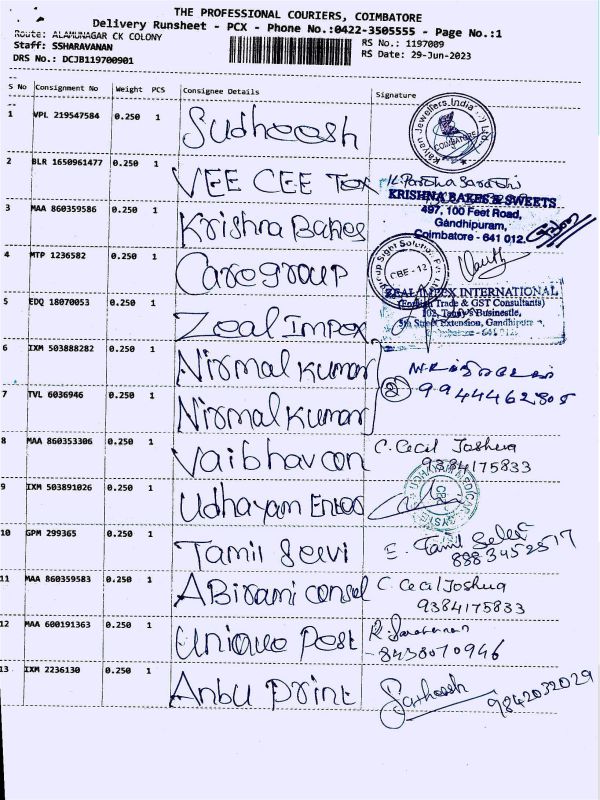 THE PROFESSIONAL COURIERS, COIMBATORE
Delivery Runsheet - PCX - Phone No.:0422-3505555 - Page No.:1
Route: ALAMUNAGAR CK COLONY
Staff: SSHARAVANAN
RS No.: 1197009
DRS No.: DCJB119700901
RS Date: 29-Jun-2023
S No Consignment No Weight PCS Consignee Details Signature
1 VPL 219547584 0.250 1 Sudheesh
Kalyan Jewellers India Pvt Ltd
COIMBATORE
2 BLR 1650961477 0.250 1 VEE CEE Tex K. Partha Sarathi
KRISHNA BAKES & SWEETS
3 MAA 860359586 0.250 1 Krishna Bakes
497, 100 Feet Road,
Gandhipuram,
Coimbatore - 641 012.
4 MTP 1236582 0.250 1 Caregroup
CBE - 12
5 EDQ 18070053 0.250 1 Zeal Impex
ZEAL IMPEX INTERNATIONAL
(Foreign Trade & GST Consultants)
6 IXM 503888282 0.250 1 Nirmal Kumar
7 TVL 6036946 0.250 1 Nirmal Kumar
9944462805
8 MAA 860353306 0.250 1 Vaibhav con C. Cecil Joshua
9384175833
9 IXM 503891026 0.250 1 Udhayam Enter
10 GPM 299365 0.250 1 Tamil Selvi E. Tamil Selvi
8883452517
11 MAA 860359583 0.250 1 ABirami consel C. Cecil Joshua
9384175833
12 MAA 600191363 0.250 1 Unique Pest R. Saravanan
8438070946
13 IXM 2236130 0.250 1 Anbu Print Satheesh 9842032029